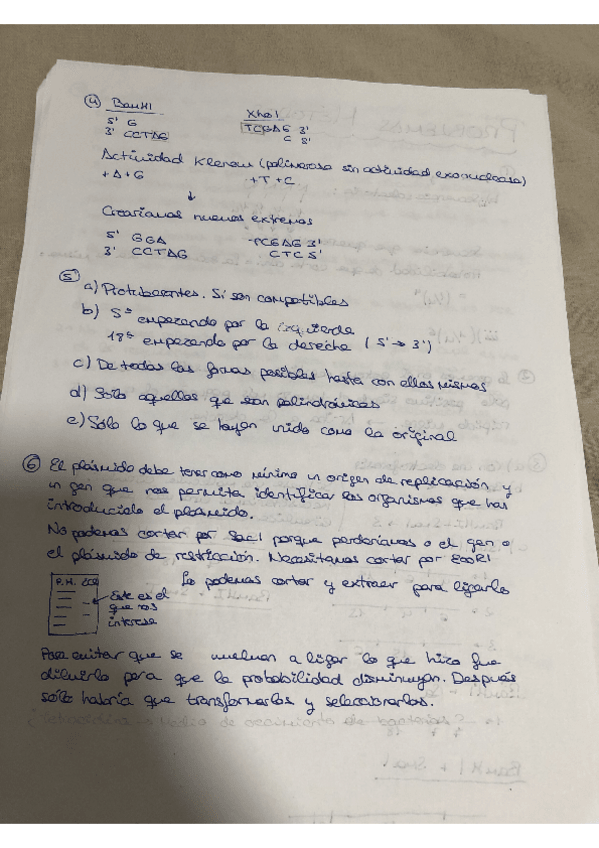 ④ BamHI XhoI
5' G TCGAG 3'
3' CCTAG C 5'
Actividad Klenow (polimerasa sin actividad exonucleasa)
+A+G +T+C
↓
Crearíamos nuevos extremos
5' GGA TCGAG 3'
3' CCTAG CTC 5'
⑤ a) Protuberantes. Si son compatibles
b) 5ª empezando por la izquierda
18ª empezando por la derecha (5'→3')
c) De todas las formas posibles hasta con ellas mismas
d) Solo aquellos que sean palindrómicas
e) Sólo lo que se hayan unido como la original
⑥ El plásmido debe tener como mínimo un origen de replicación y
un gen que nos permita identificar los organismos que han
introducido el plásmido.
No podemos cortar por SacI porque perderíamos o el gen o
el plásmido de restricción. Necesitamos cortar por EcoRI
P.M. Lo podemos cortar y extraer para ligarlo
Este es el
que nos
interesa
Para evitar que se vuelvan a ligar lo que hizo fue
diluirlo para que la probabilidad disminuyan. Después
sólo habría que transformarlos y seleccionarlos.